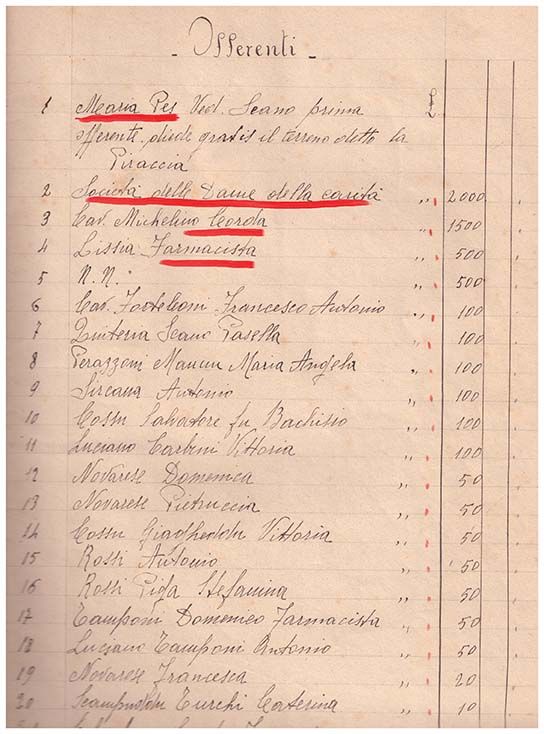 - Offerenti -
1 Maria Pes Ved. Scano prima
offerente diede gratis il terreno detto la
Piraccia
2 Società delle Dame della carità ,, 2000
3 Cav. Michelino Corda ,, 1500
4 Lissia Farmacista ,, 500
5 N. N. ,, 500
6 Cav. Forteleoni Francesco Antonio ,, 100
7 Quiteria Scano Pasella ,, 100
8 Perazzoni Maria Angela ,, 100
9 Sircana Antonio ,, 100
10 Cossu Salvatore fu Bachisio ,, 100
11 Luciano Carbini Vittoria ,, 100
12 Novarese Domenica ,, 50
13 Novarese Pietruccia ,, 50
14 Cossu Giagheddu Vittoria ,, 50
15 Rossi Antonio ,, 50
16 Rossi Piga Stefanina ,, 50
17 Tamponi Domenico Farmacista ,, 50
18 Luciano Tamponi Antonio ,, 50
19 Novarese Francesca ,, 20
20 Turchi Caterina ,, 10